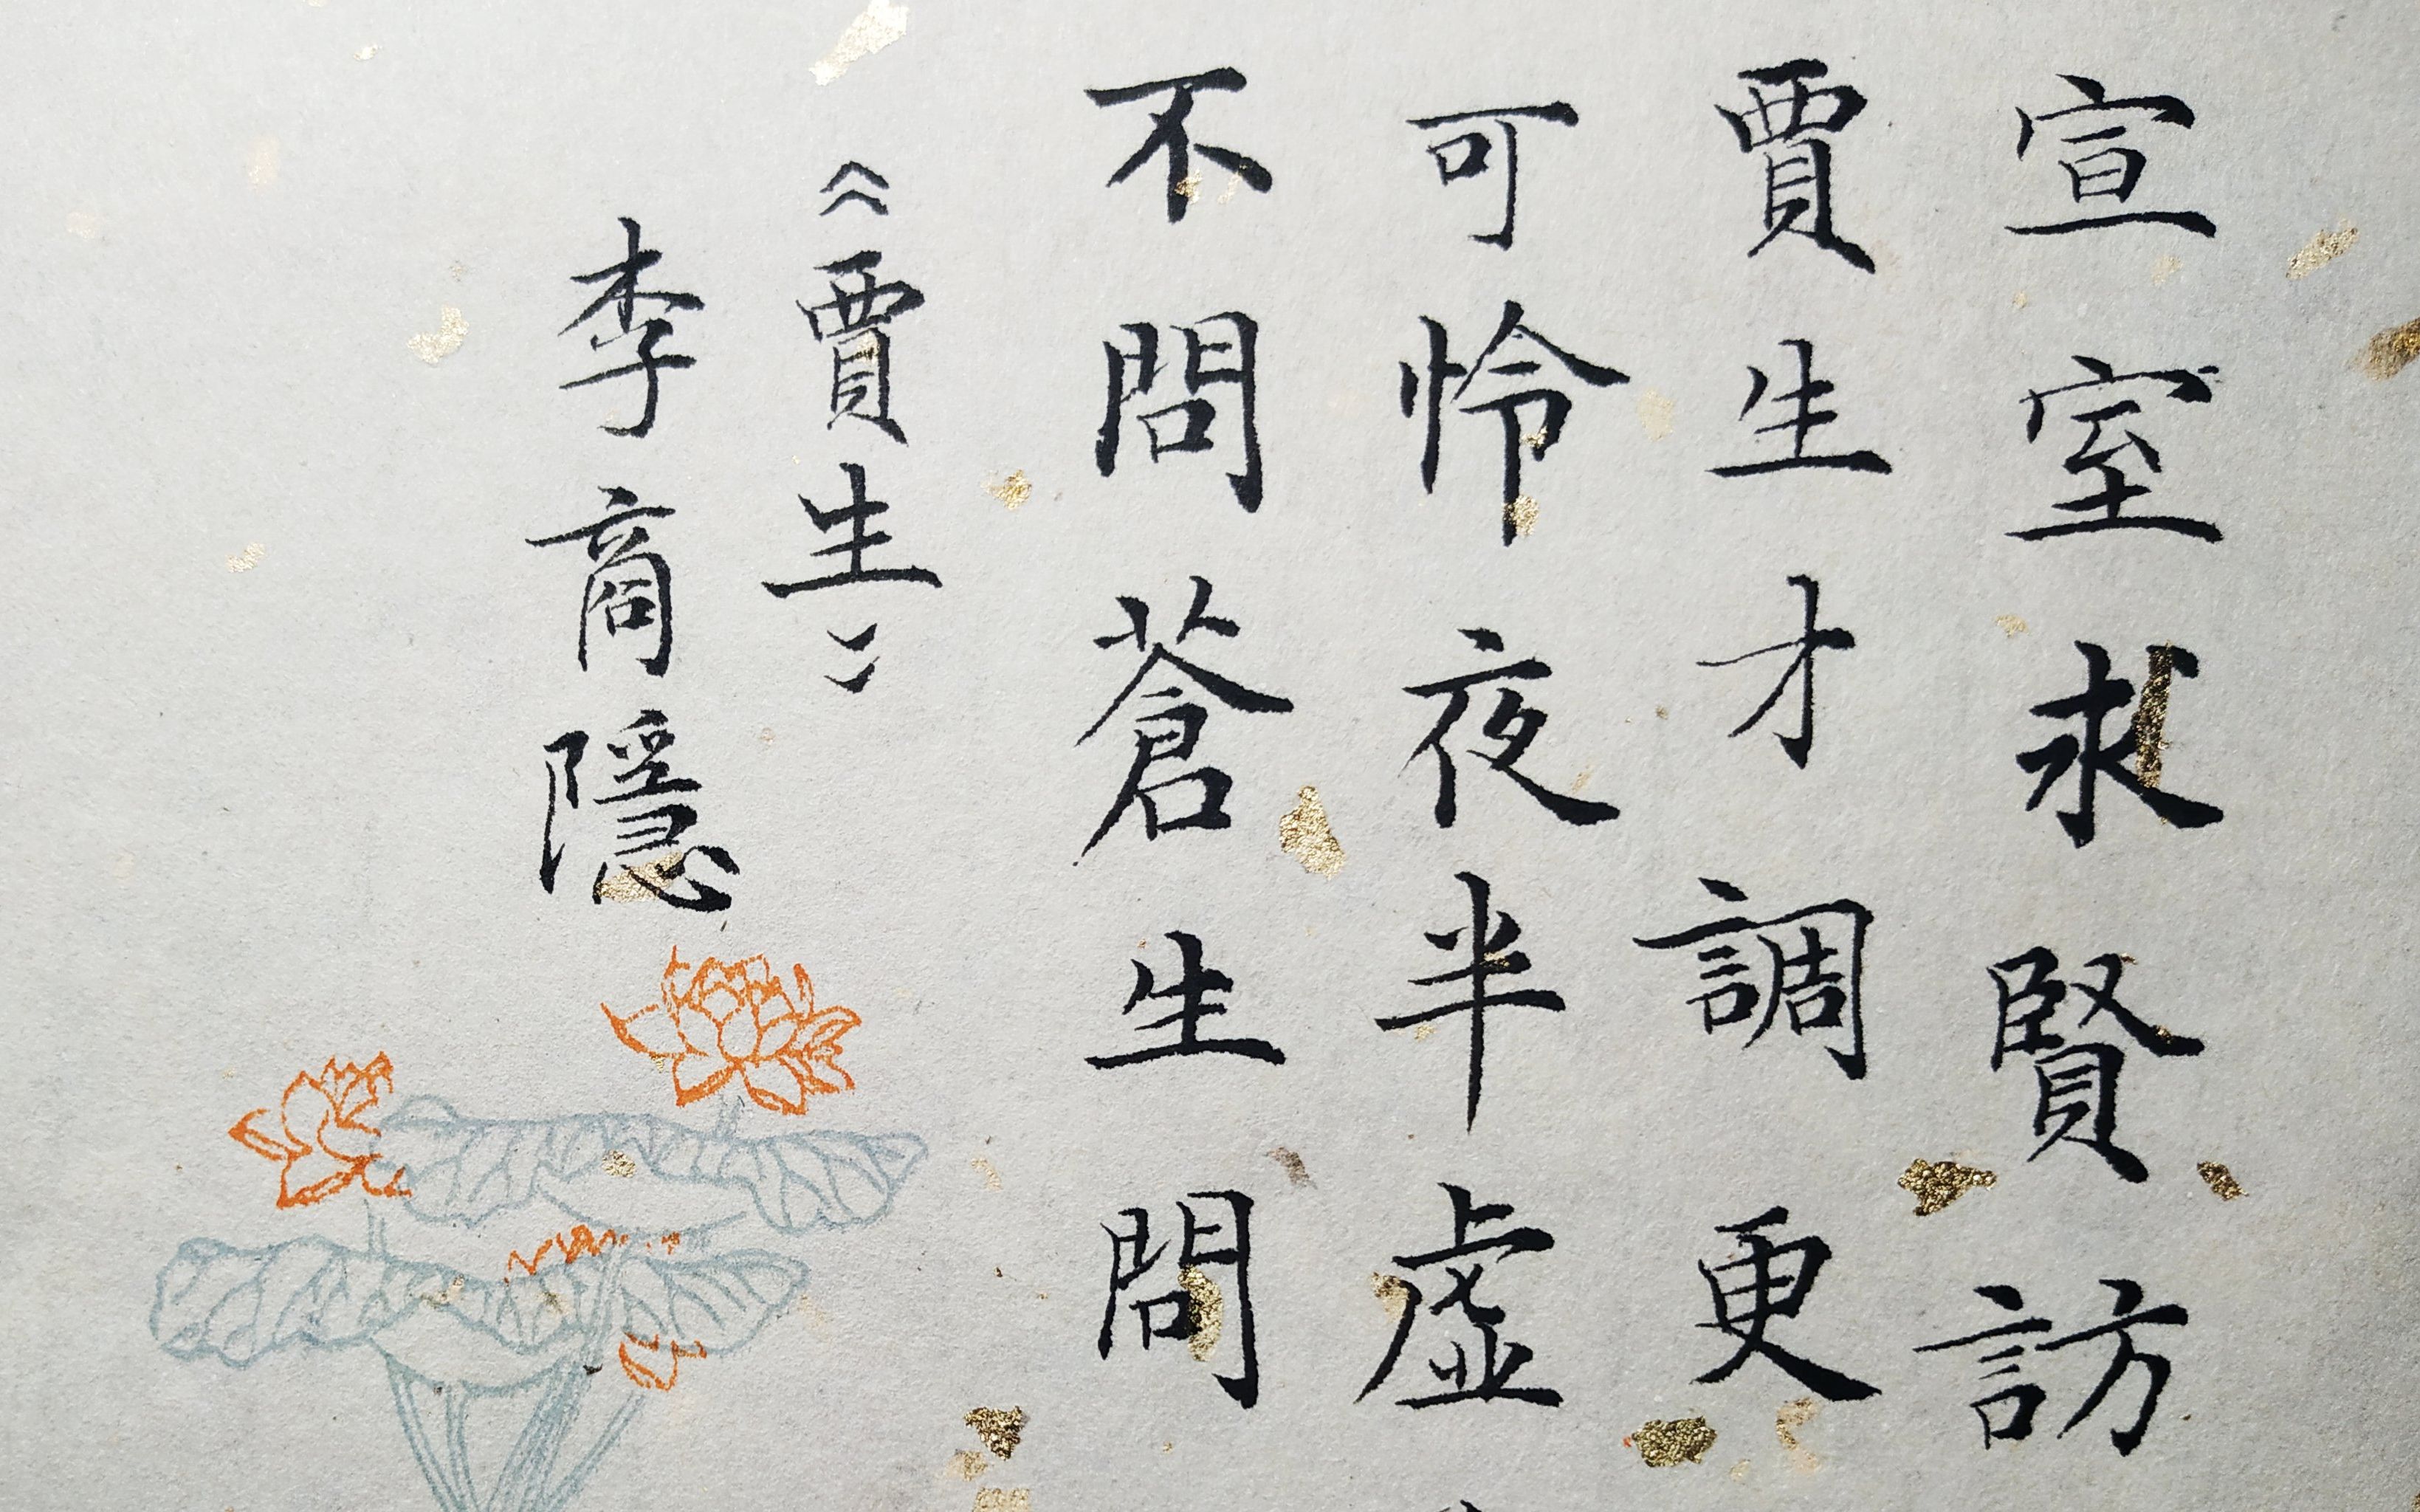 宣室求賢訪
賈生才調更
可怜夜半虛
不問蒼生問
《賈生》
李商隱